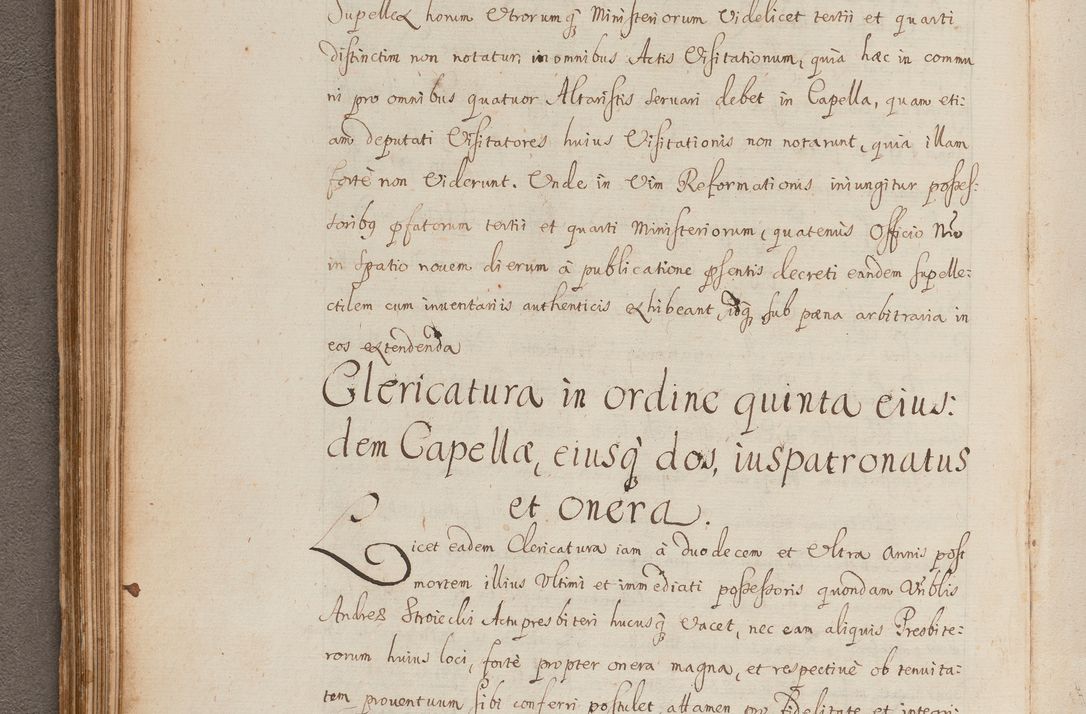 Supellex horum Utrorumq̃ Ministeriorum Videlicet tertii et quarti
distinctim non notatur, in omnibus Actis Visitationum, quia hæc in commu
ni pro omnibus quatuor Altaristis servari debet in Capella, quam eti:
am deputati Visitatores huius Visitationis non notarunt, quia illam
fortè non Viderunt. Unde in Vim Reformationis iniungitur posses:
soribq pfatorum tertii et quarti Ministeriorum, quatenùs Officio Nro
in spatio novem dierum à publicatione psentis decreti eandem supelle:
ctilem cum inventariis authenticis exhibeant, idq̃ sub pæna arbitraria in
eos extendenda
Clericatura in ordine quinta eius:
dem Capellæ, eiusq̃ dos, iuspatronatus
et onera.
Licet eadem Clericatura iam à duodecem et Ultra annis post
mortem illius Ultimi et immediati possessoris quondam Vnblis
Andreæ Stroiecki Actupresbiteri hucusq̃ Vacet, nec eam aliquis Presbite:
rorum huius loci, fortè propter onera magna, et respectivè ob tenuita:
tem proventuum sibi conferri postulet attamen pro Fidelitate et integri: